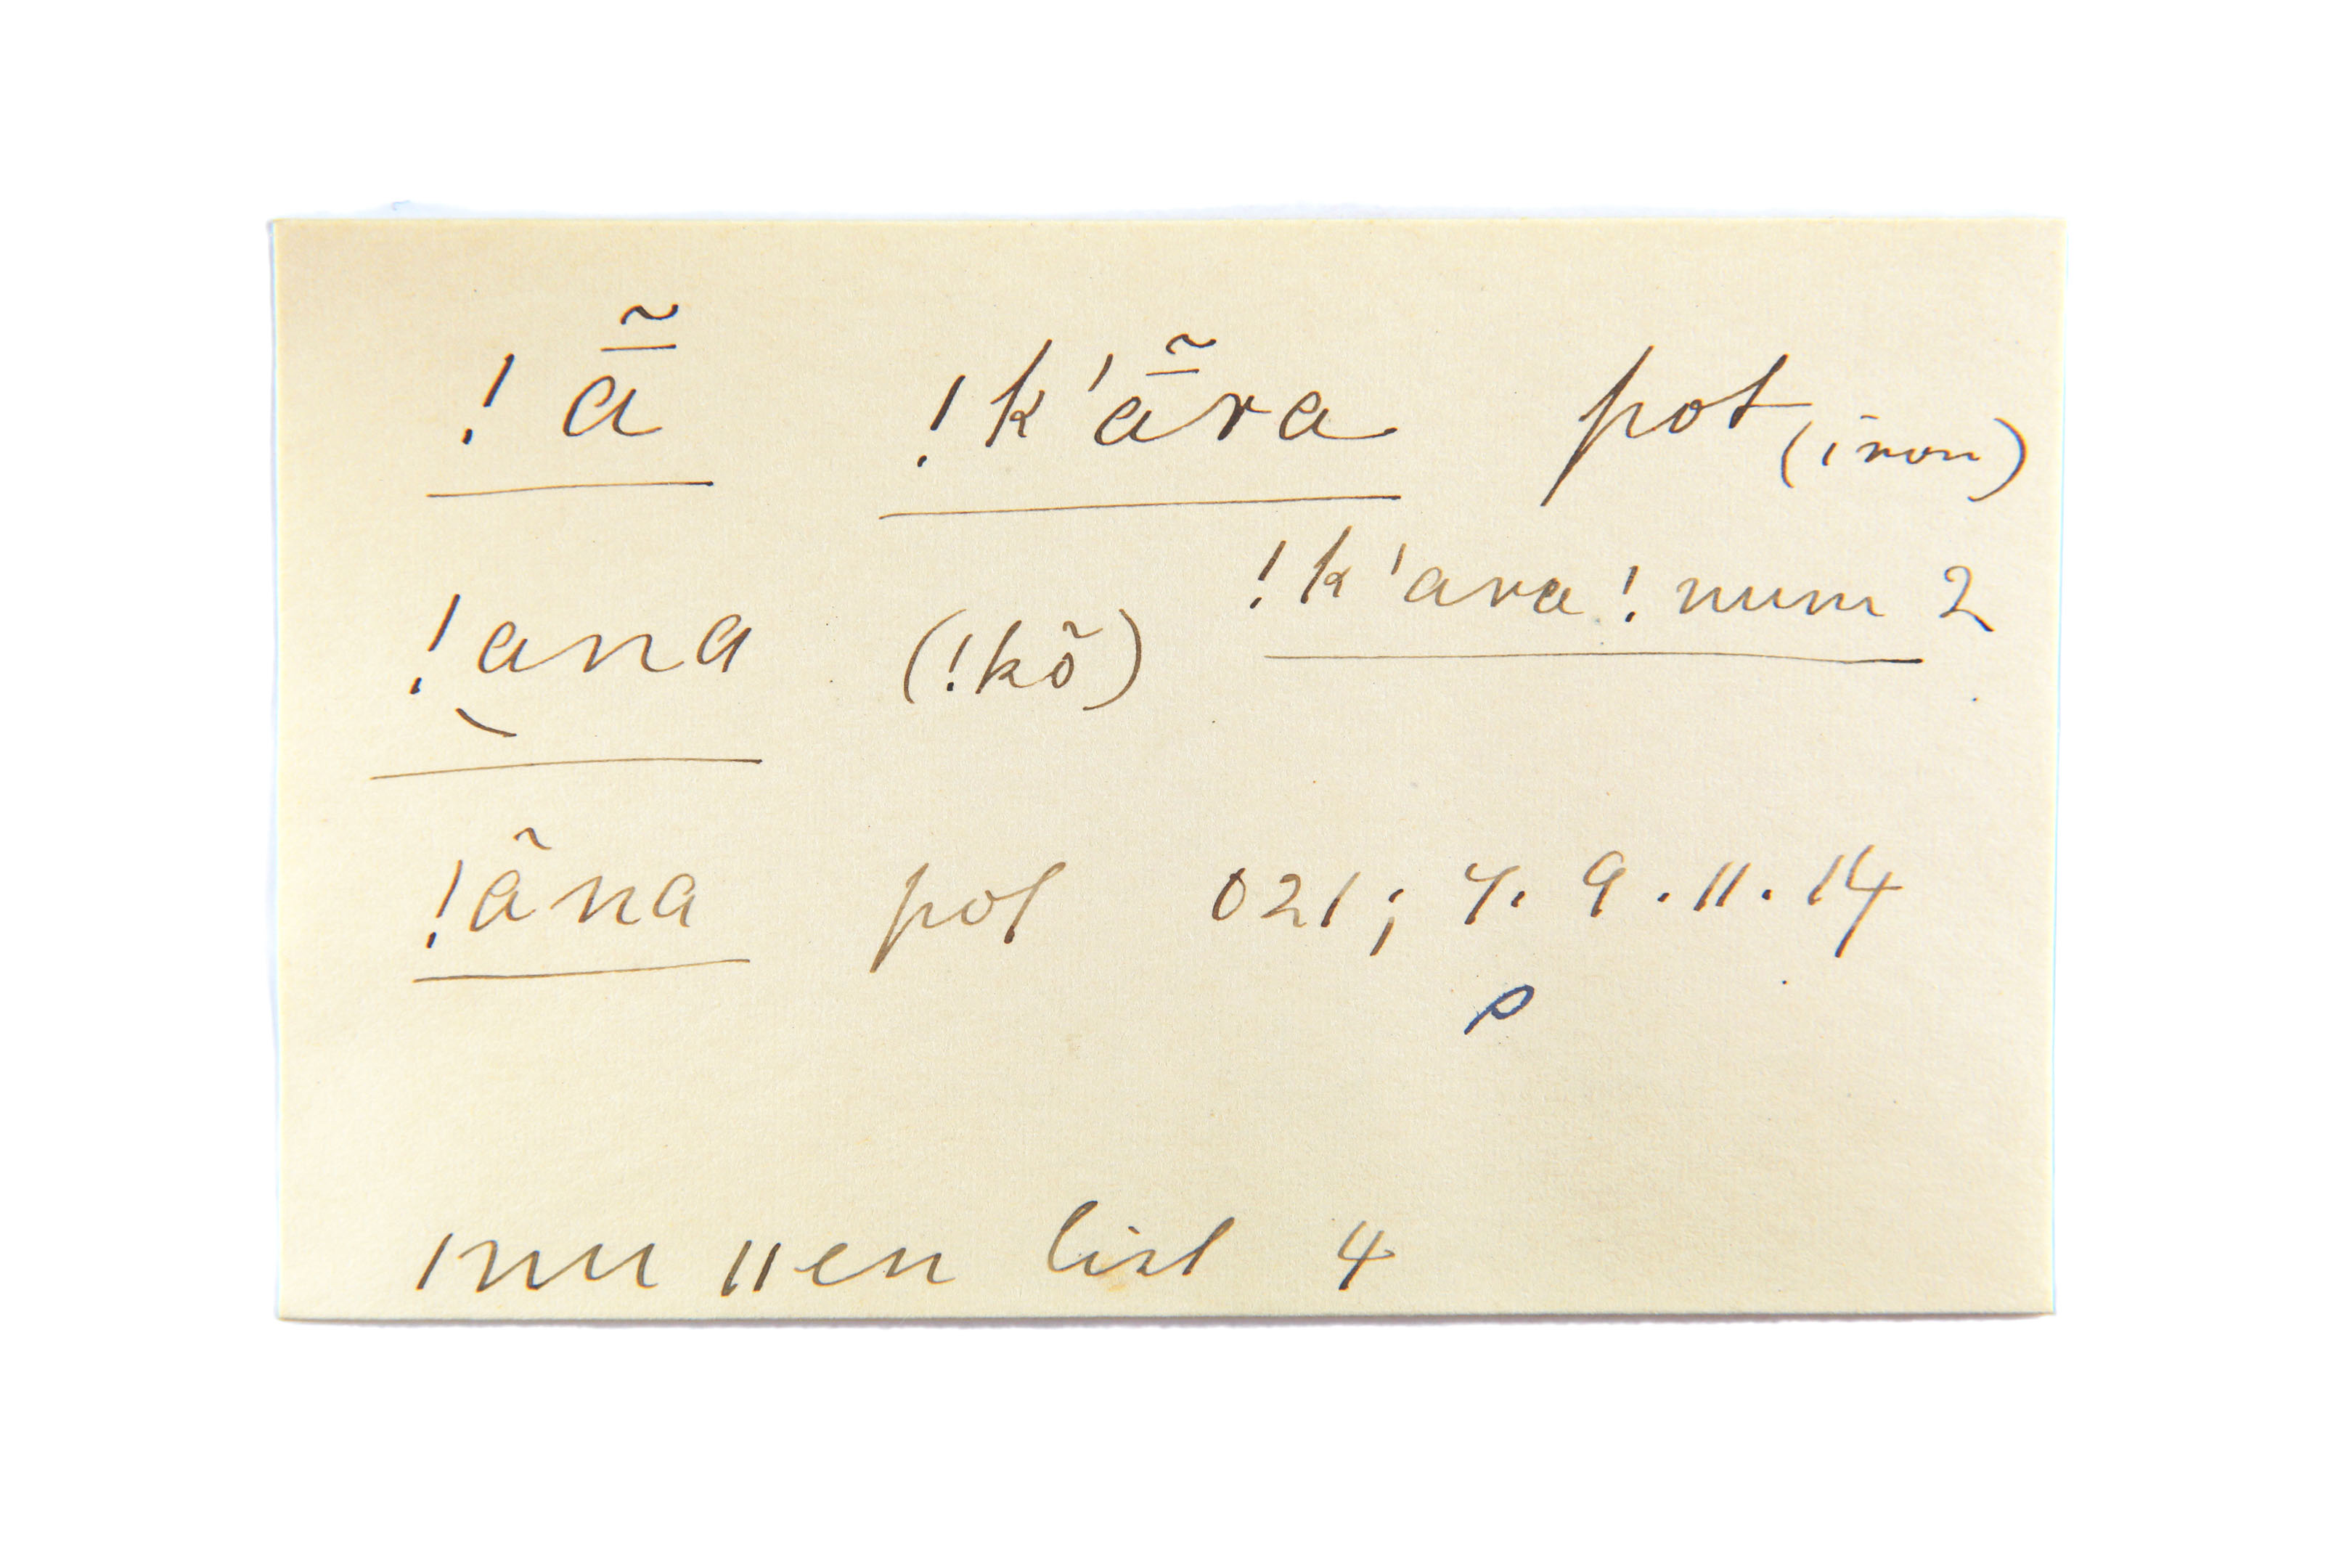 !ā̃ !k'ā̃ra pot (iron)
!k'ara!num 2
!ana (!kõ)
!ãna pot 021; 7. 9. 11. 14
ρ
ǀnu ǁen list 4